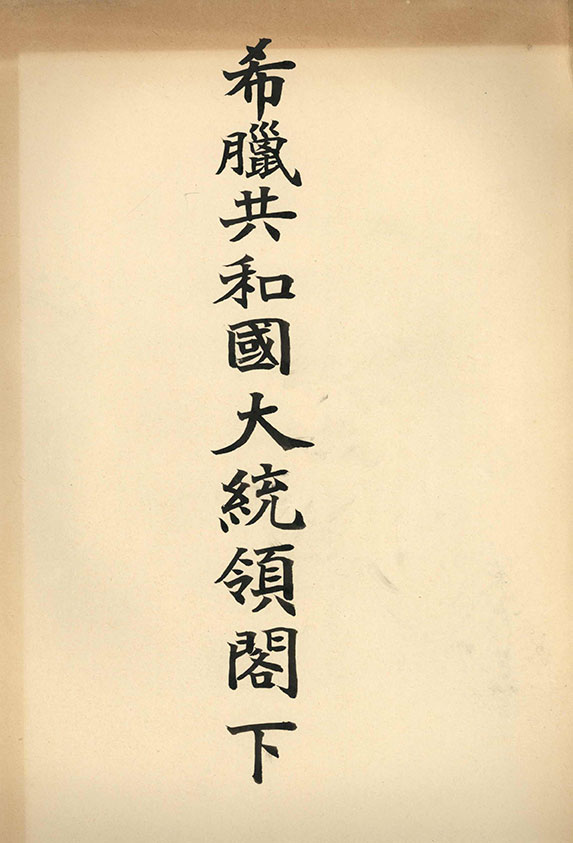 希臘共和國大統領閣下